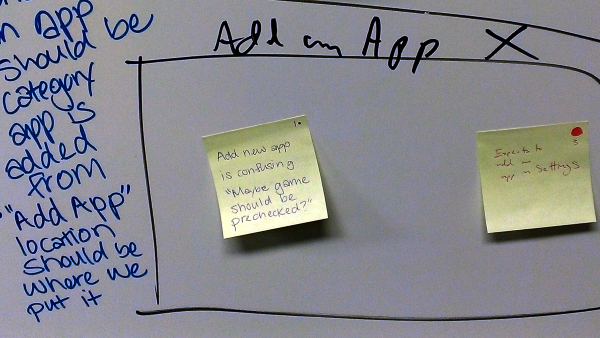 n app
should be
category
app is
added
from
"Add App"
location
should be
where we
put it
Add an App X
1.
Add new app
is confusing
"Maybe game
should be
prechecked?"
Expects to
add an
app in Settings